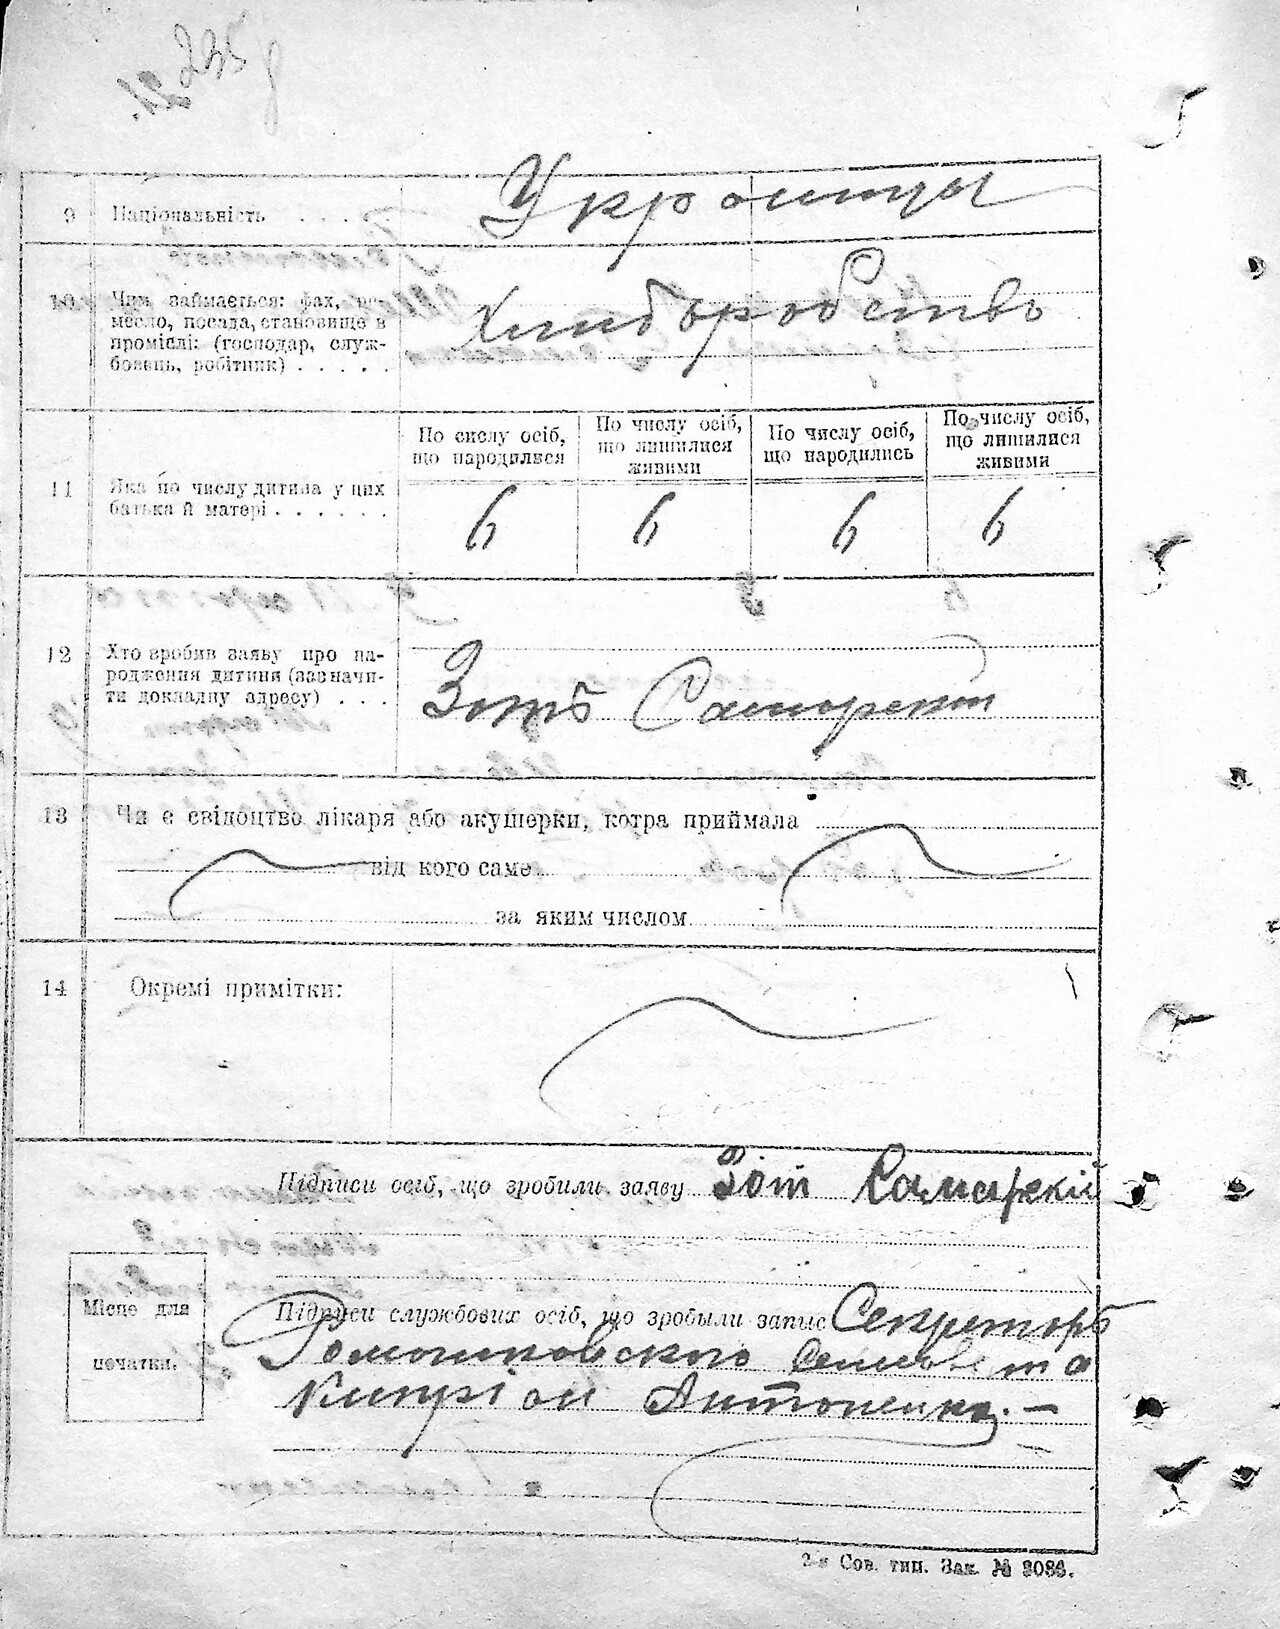 235
21.
9 Національність . . . .
Украинцы
10 Чим займається: фах, ре-
месло, посада, становище в
проміслі: (господар, служ-
бовець, робітник) . . . . .
Хлиборобство
11 Яка по числу дитина у цих
батька й матері . . . . . .
По числу осіб,
що народилися
По числу осіб,
що лишилися
живими
По числу осіб,
що народились
По числу осіб,
що лишилися
живими
6 6 6 6
12 Хто зробив заяву про на-
родження дитини (зазначи-
ти докладну адресу) . . .
Зотъ Самарский
13 Чи є свідоцтво лікаря або акушерки, котра приймала
від кого саме
за яким числом
14 Окремі примітки:
Підписи осіб, що зробили заяву Зот Самарскій
Місце для
печатки.
Підписи службових осіб, що зробыли запис Секреторь
Ромашковского Сельсовета
Кипріан Антоненко. —
2-я Сов. тип. Зак. № 3086.